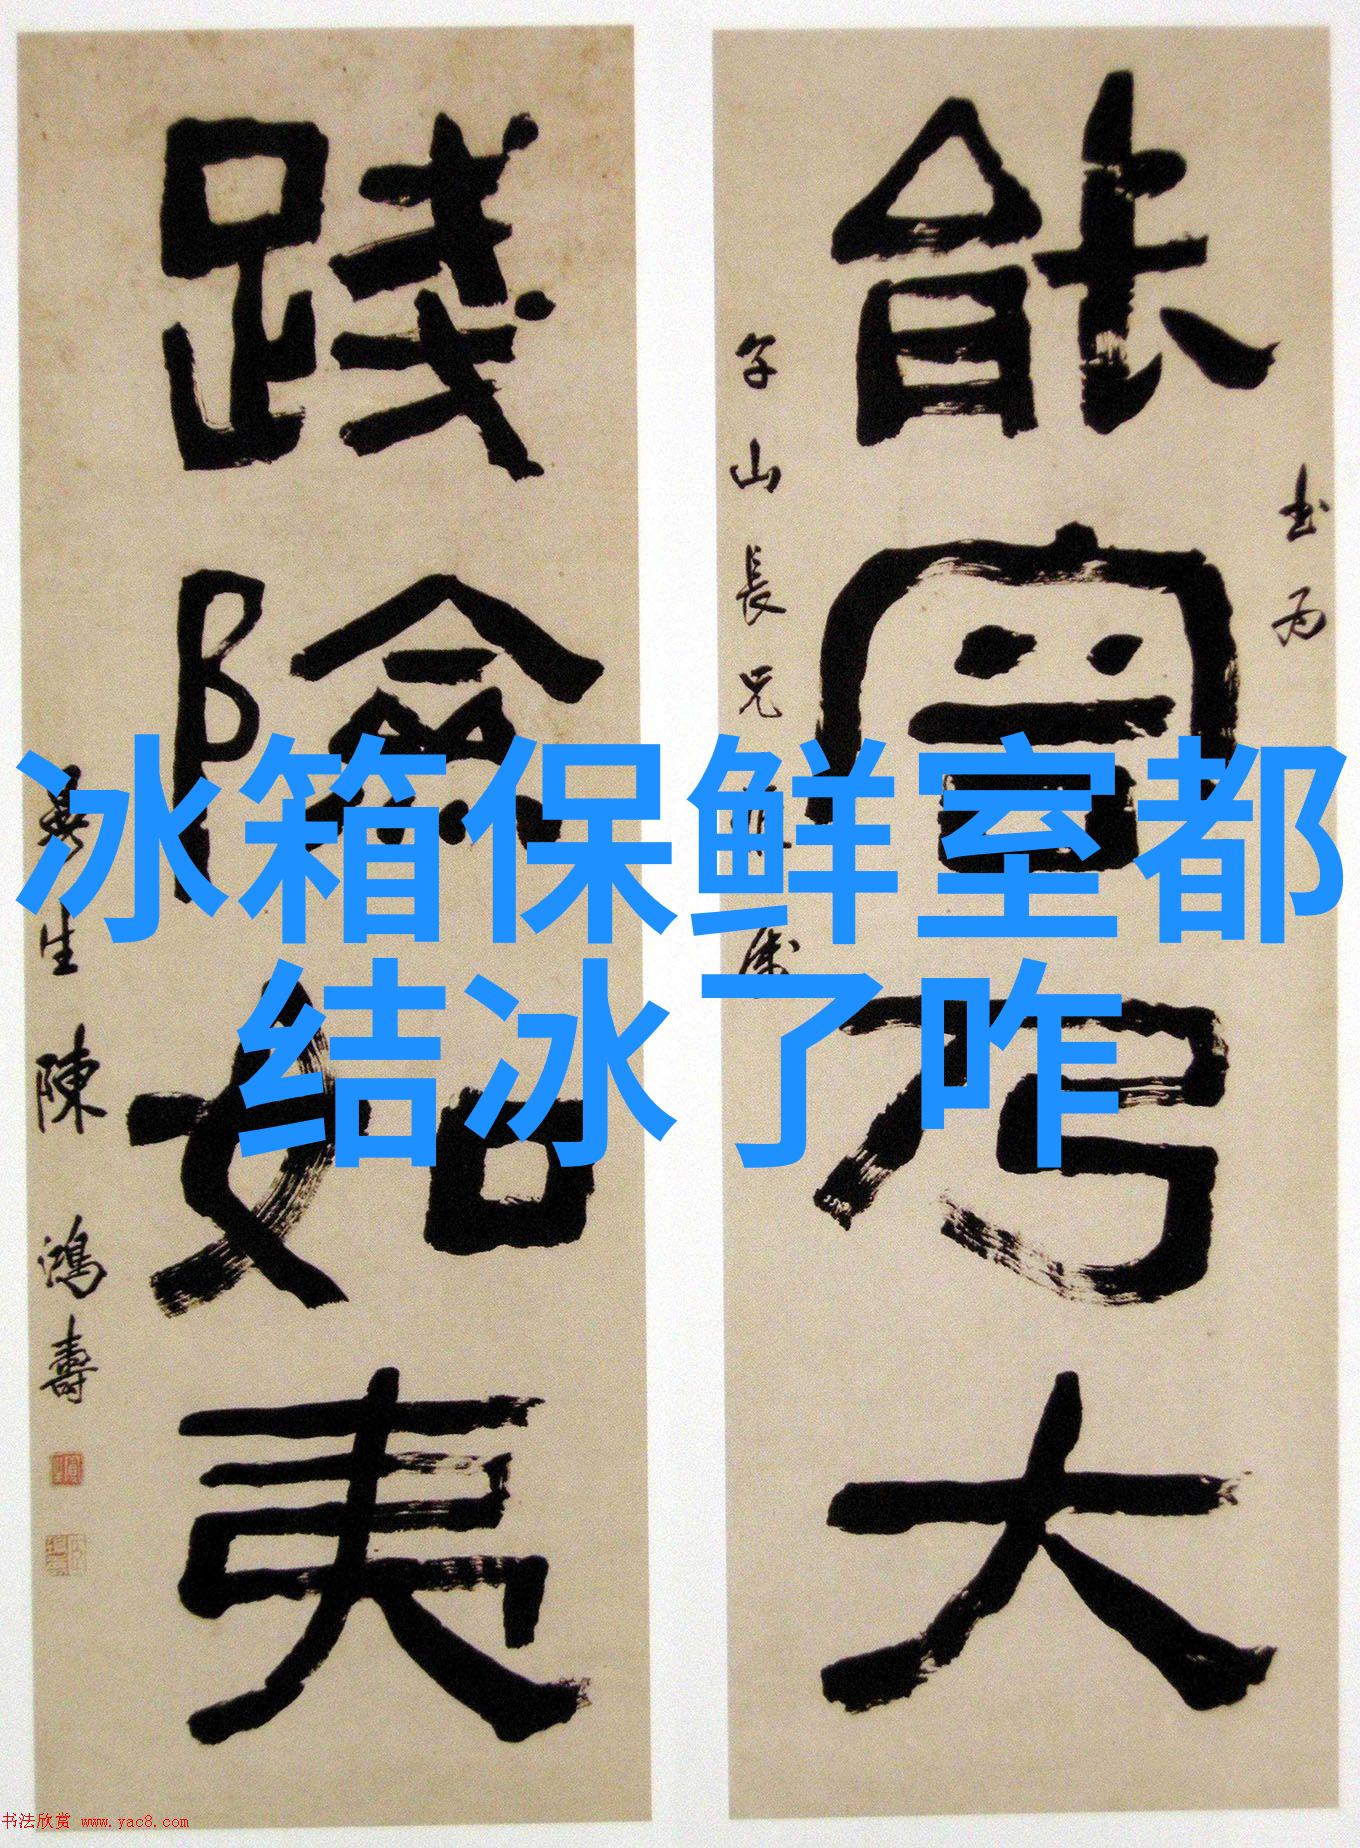 冰箱保鲜室都
结冰了咋
能容乃大
書為
山長兄
踐險如夷
曼生陳鴻壽
书法欣赏 www.yac8.com